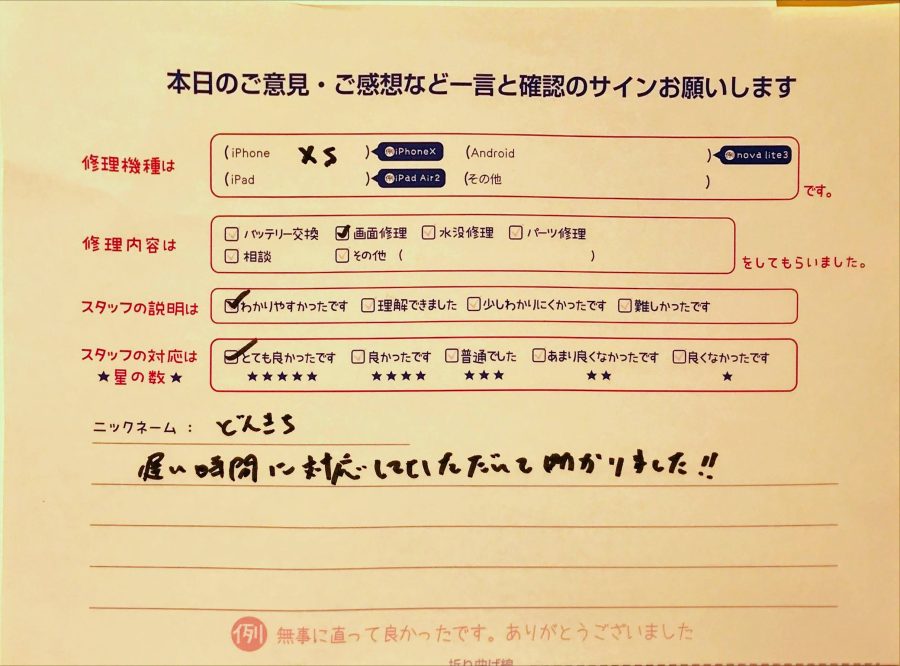 本日のご意見・ご感想など一言と確認のサインお願いします
修理機種は (iPhone XS ) 例iPhoneX (Android ) 例nova lite3
(iPad ) 例iPad Air2 (その他 ) です。
修理内容は バッテリー交換 画面修理 水没修理 パーツ修理
相談 その他 ( ) をしてもらいました。
スタッフの説明は わかりやすかったです 理解できました 少しわかりにくかったです 難しかったです
スタッフの対応は とても良かったです 良かったです 普通でした あまり良くなかったです 良くなかったです
★星の数★ ★★★★★ ★★★★ ★★★ ★★ ★
ニックネーム: どんきち
遅い時間に対応していただいて助かりました!!
例 無事に直って良かったです。ありがとうございました
折り曲げ線